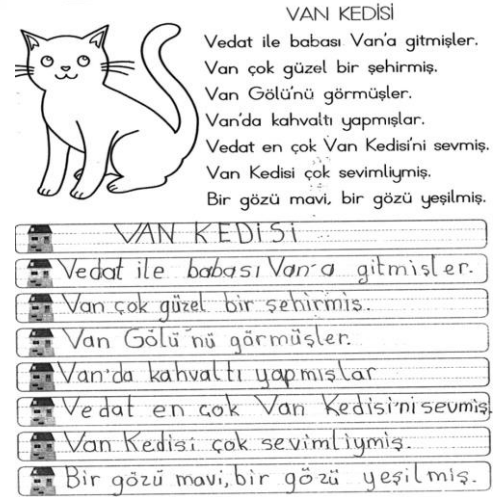 VAN KEDİSİ
Vedat ile babası Van'a gitmişler.
Van çok güzel bir şehirmiş.
Van Gölü'nü görmüşler.
Van'da kahvaltı yapmışlar.
Vedat en çok Van Kedisi'ni sevmiş.
Van Kedisi çok sevimliymiş.
Bir gözü mavi, bir gözü yeşilmiş.
VAN KEDİSİ
Vedat ile babası Van'a gitmişler.
Van çok güzel bir şehirmiş.
Van Gölü'nü görmüşler.
Van'da kahvaltı yapmışlar
Vedat en çok Van Kedisi'ni sevmiş
Van Kedisi çok sevimliymiş.
Bir gözü mavi, bir gözü yeşilmiş.